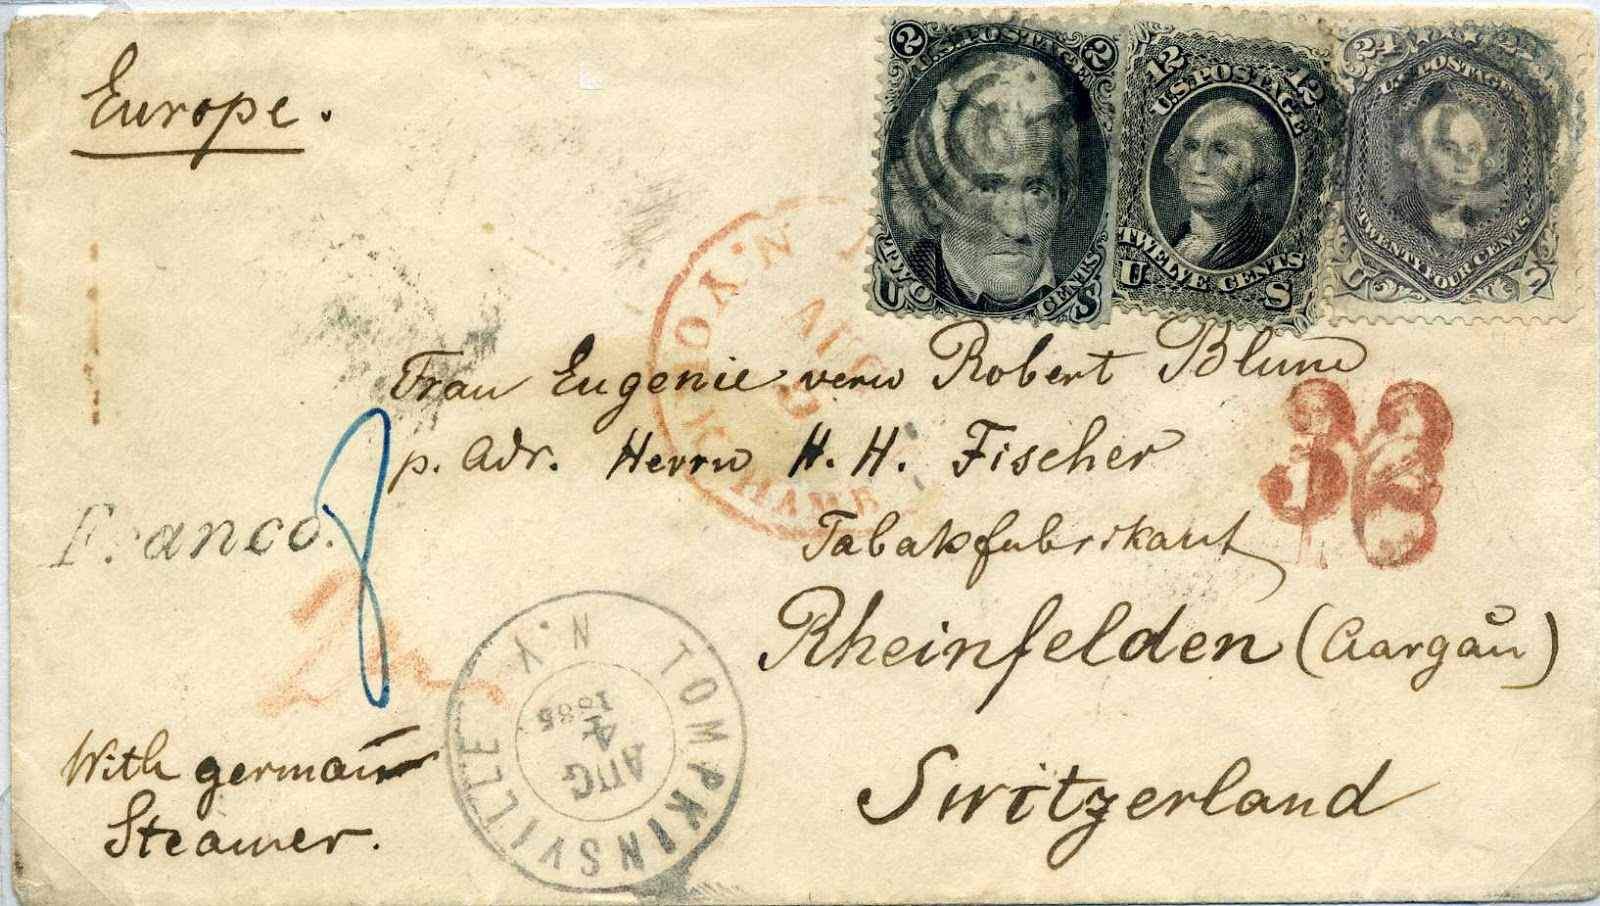 Europe.
2 U.S. POSTAGE 2
TWO CENTS
U S
12 U.S. POSTAGE 12
TWELVE CENTS
U S
24 U.S. POSTAGE
TWENTY FOUR CENTS
U
N. YORK
AUG
HAMB
Frau Eugenie verw Robert Blum
p. Adr. Herrn H. H. Fischer
Tabakfabrikant
Rheinfelden (Aargau)
Switzerland
Franco.
TOMPKINSVILLE N.Y.
AUG
4
With german
Steamer.